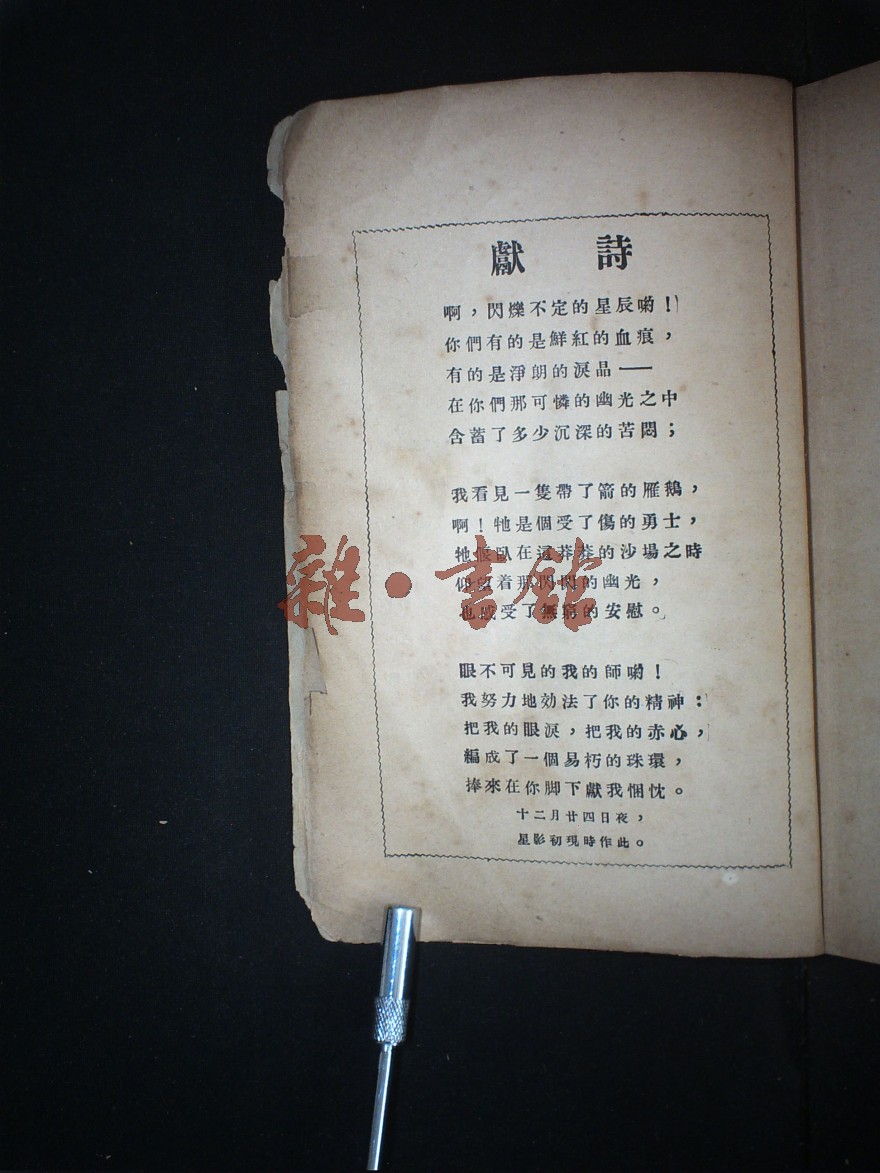 獻詩
啊，閃爍不定的星辰喲！
你們有的是鮮紅的血痕，
有的是淨朗的淚晶——
在你們那可憐的幽光之中
含蓄了多少沉深的苦悶；
我看見一隻帶了箭的雁鵝，
啊！牠是個受了傷的勇士，
牠偃臥在這莽莽的沙場之時
仰望着那閃閃的幽光，
也感受了無窮的安慰。
眼不可見的我的師喲！
我努力地効法了你的精神：
把我的眼淚，把我的赤心，
編成了一個易朽的珠環，
捧來在你脚下獻我悃忱。
十二月廿四日夜，
星影初現時作此。
雜·書舘